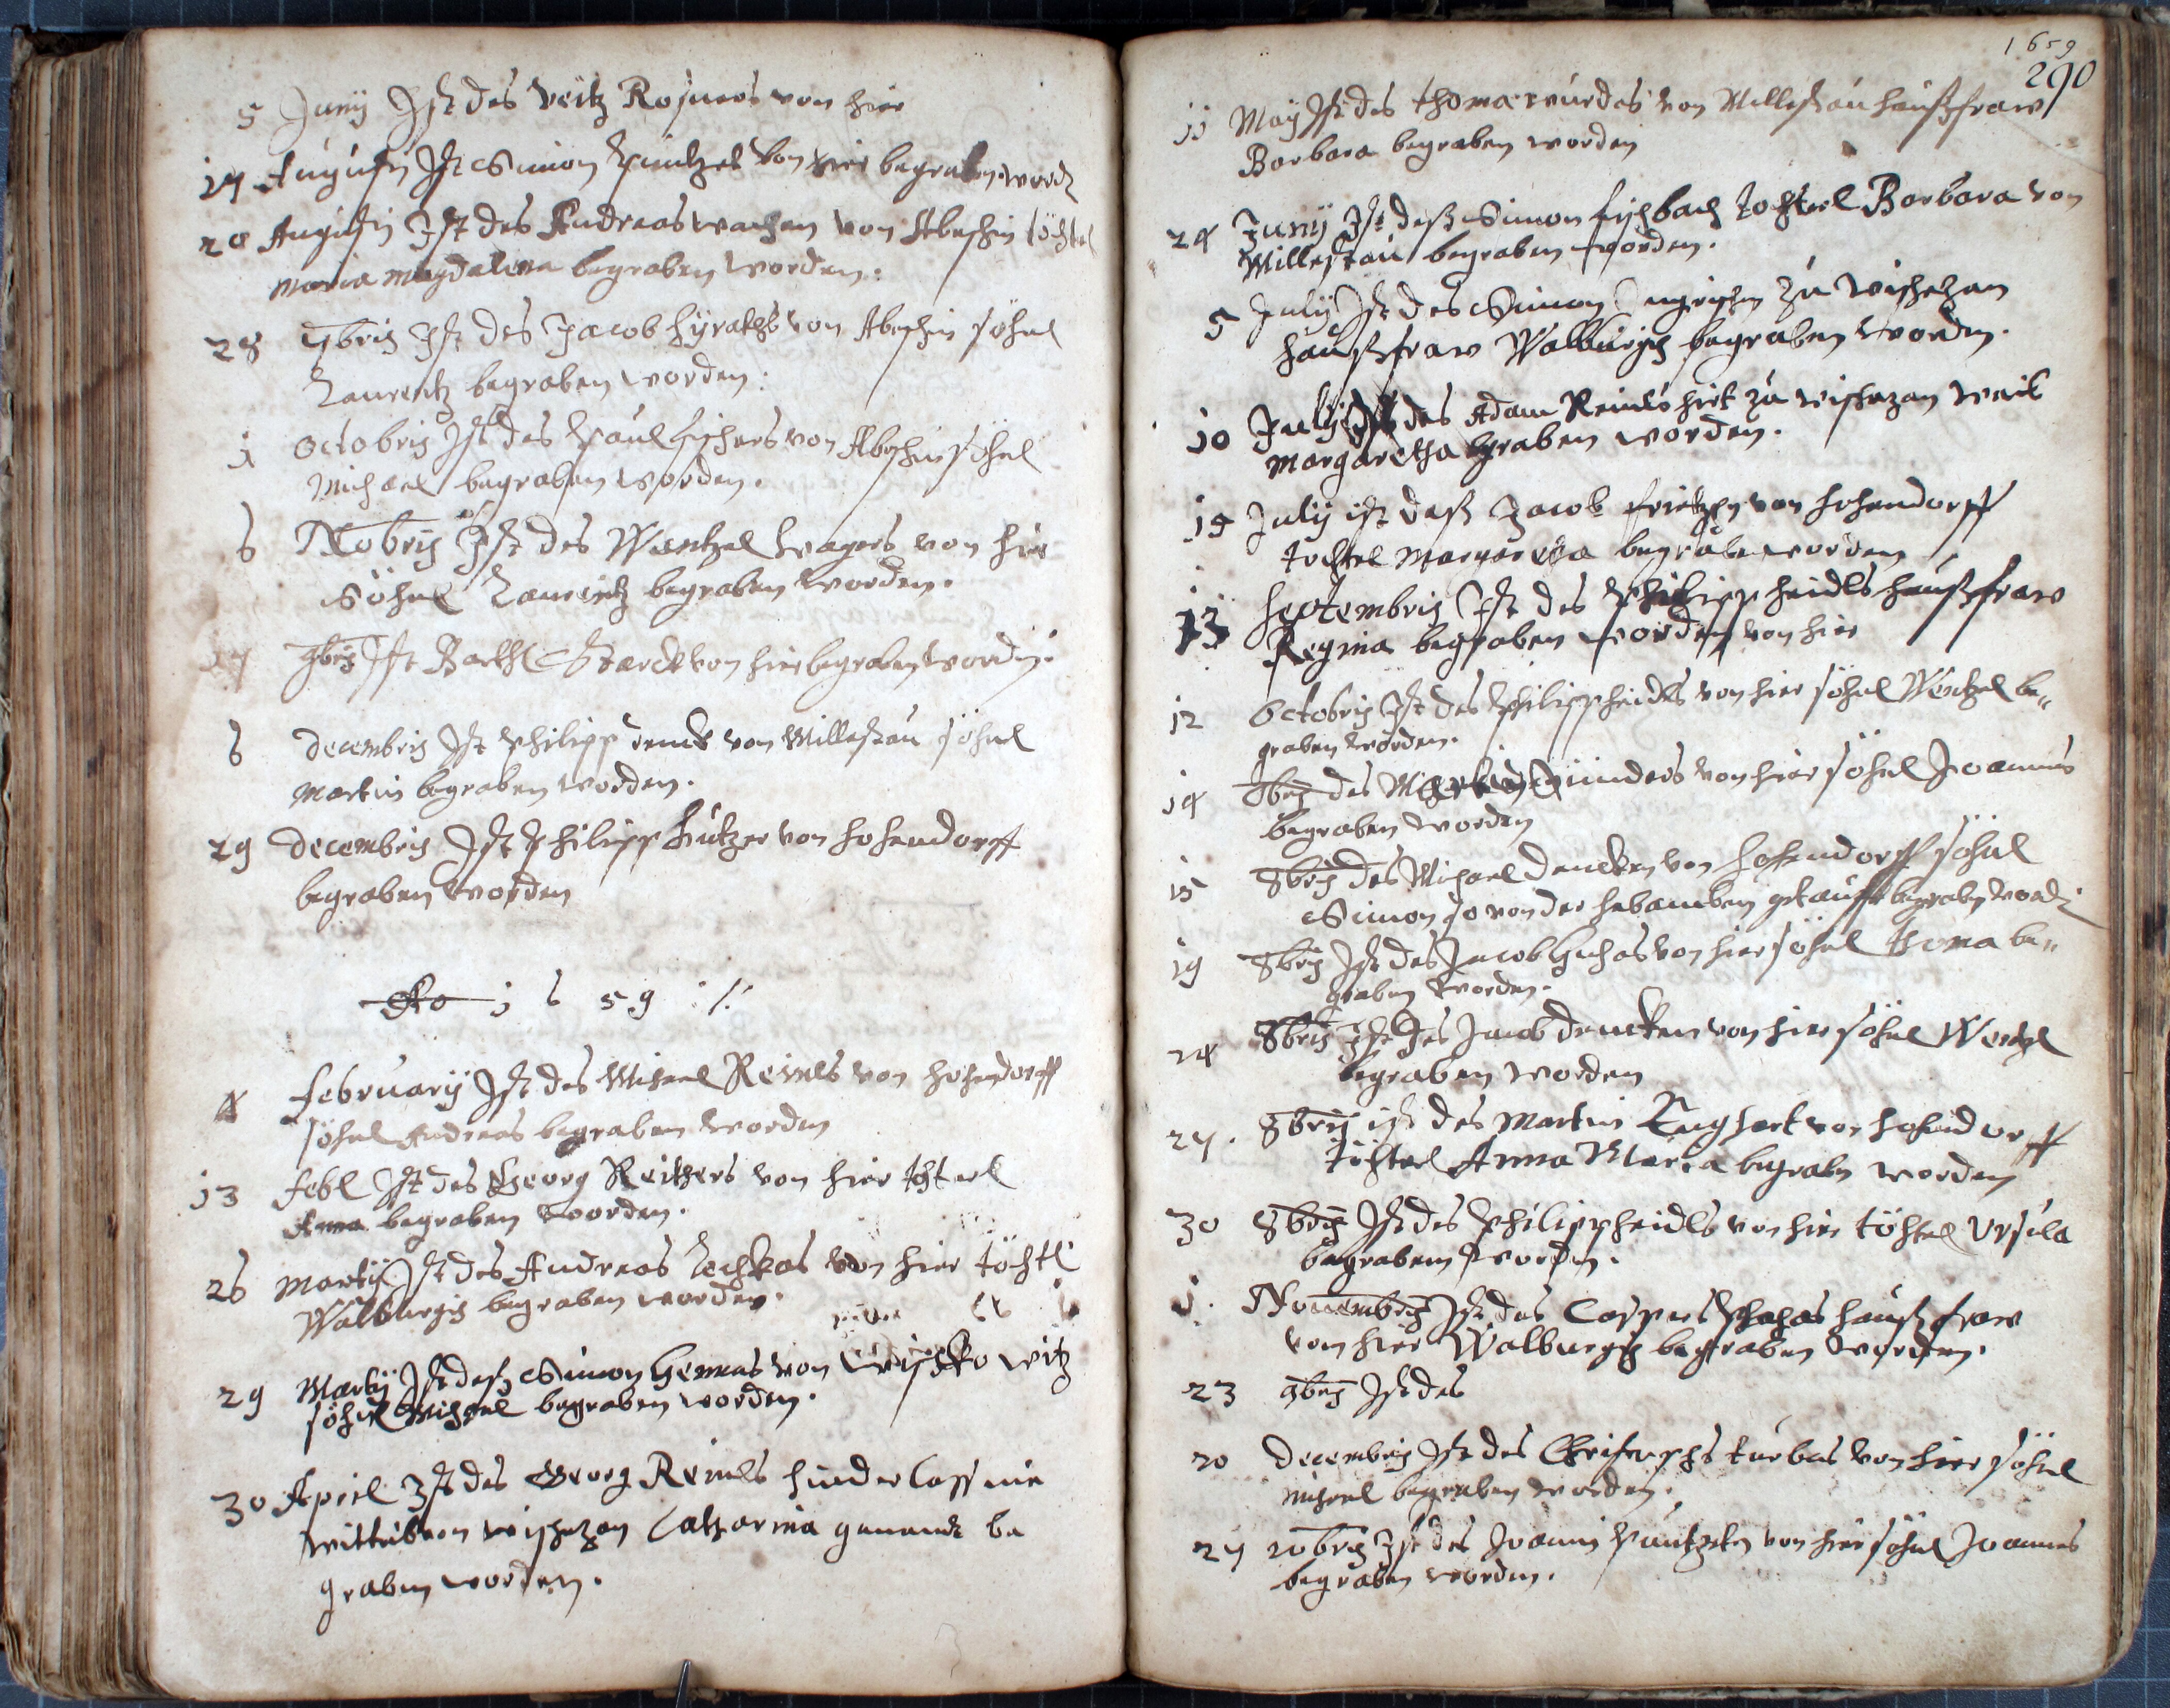 5 Junij Ist des Veitz Rosners von hier
17 Augusti Ist Simon von hier begraben word
20 Augusti Ist des Andreas von Abeschin töchtel
Maria Magdalena begraben worden:
28 7bris Ist des Jacob von Abeschin söhnl
Laurentz begraben worden:
1 Octobris Ist des Paul Fischers von Abeschin söhnl
Michael begraben worden.
6 Nobris Ist des Wentzel von hier
Söhnl Laurentz begraben worden.
27 9bris Ist Barthl von hier begraben worden.
6 Decembris Ist Philipp Denck von Millestau söhnl
Martin begraben worden.
29 Decembris Ist Philipp von Hohendorff
begraben worden
Ao 1659 ./.
4 February Ist des Michael Reinls von Hohendorff
söhnl Andreas begraben worden
13 Febl Ist des Georg Reithers von hier
Anna begraben worden.
26 Martij Ist des Andreas von hier töchtl
Walburgis begraben worden.
29 Martij Ist deß Simon von Wischkowitz
söhnl Michael begraben worden.
30 April Ist des Georg Reinls hinderlassene
wittib von Wischezan Catharina genandt be
graben worden.
1659
290
11 Maij Ist des Thomae von Millestau haußfraw
Barbara begraben worden
24 Junij Ist deß Simon Fischbach tochterl Barbara von
Millestau begraben worden.
5 Julij Ist des Simon zu Wischezan
haußfraw Walburgis begraben worden.
10 Julij Ist des Adam Reinls hirt zu Wischezan weib
Margaretha bgraben worden.
19 Julij ist deß Jacob von Hohendorff
tochtel Margareta begraben worden
13 Septembris Ist des Philipp Heidls haußfraw
Regina begraben worden von hier
12 Octobris Ist des Philipp Heidls von hier söhnl Wentzel be„
graben worden.
14 8bris des von hier söhnl Joannes
begraben worden
15 8bris des Michael Dencken von Hohendorff söhnl
Simon so von der hebamben getaufft begraben word
19 8bris Ist des Jacob von hier söhnl Thoma be„
graben worden.
24 8bris Ist des Jacob Dencken von hier söhnl Wentzl
begraben worden
27. 8bris ist des Martin Lughart von Hohendorff
töchterl Anna Maria begraben worden
30 8bris Ist des Philipp Heidls von hier töchtel Ursula
begraben worden.
1. Nouembris Ist des Caspers haußfraw
von hier Walburgis begraben worden.
23 9bris Ist des
20 Decembris Ist des Christophs von hier söhnl
Michael begraben worden.
27 10bris Ist des Joannis von hier söhnl Joannes
begraben worden.